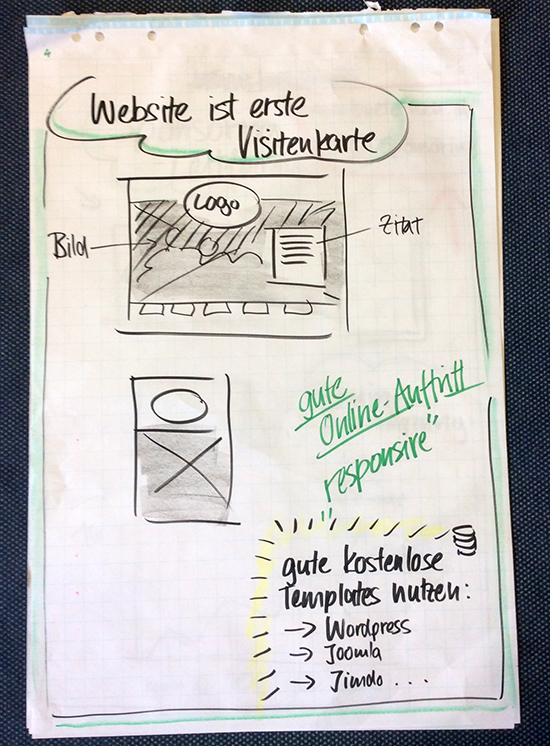 Website ist erste
Visitenkarte
Logo
Bild
Zitat
gute
Online-Auftritt
"responsive"
gute kostenlose
Templates nutzen:
→ Wordpress
→ Joomla
→ Jimdo ...